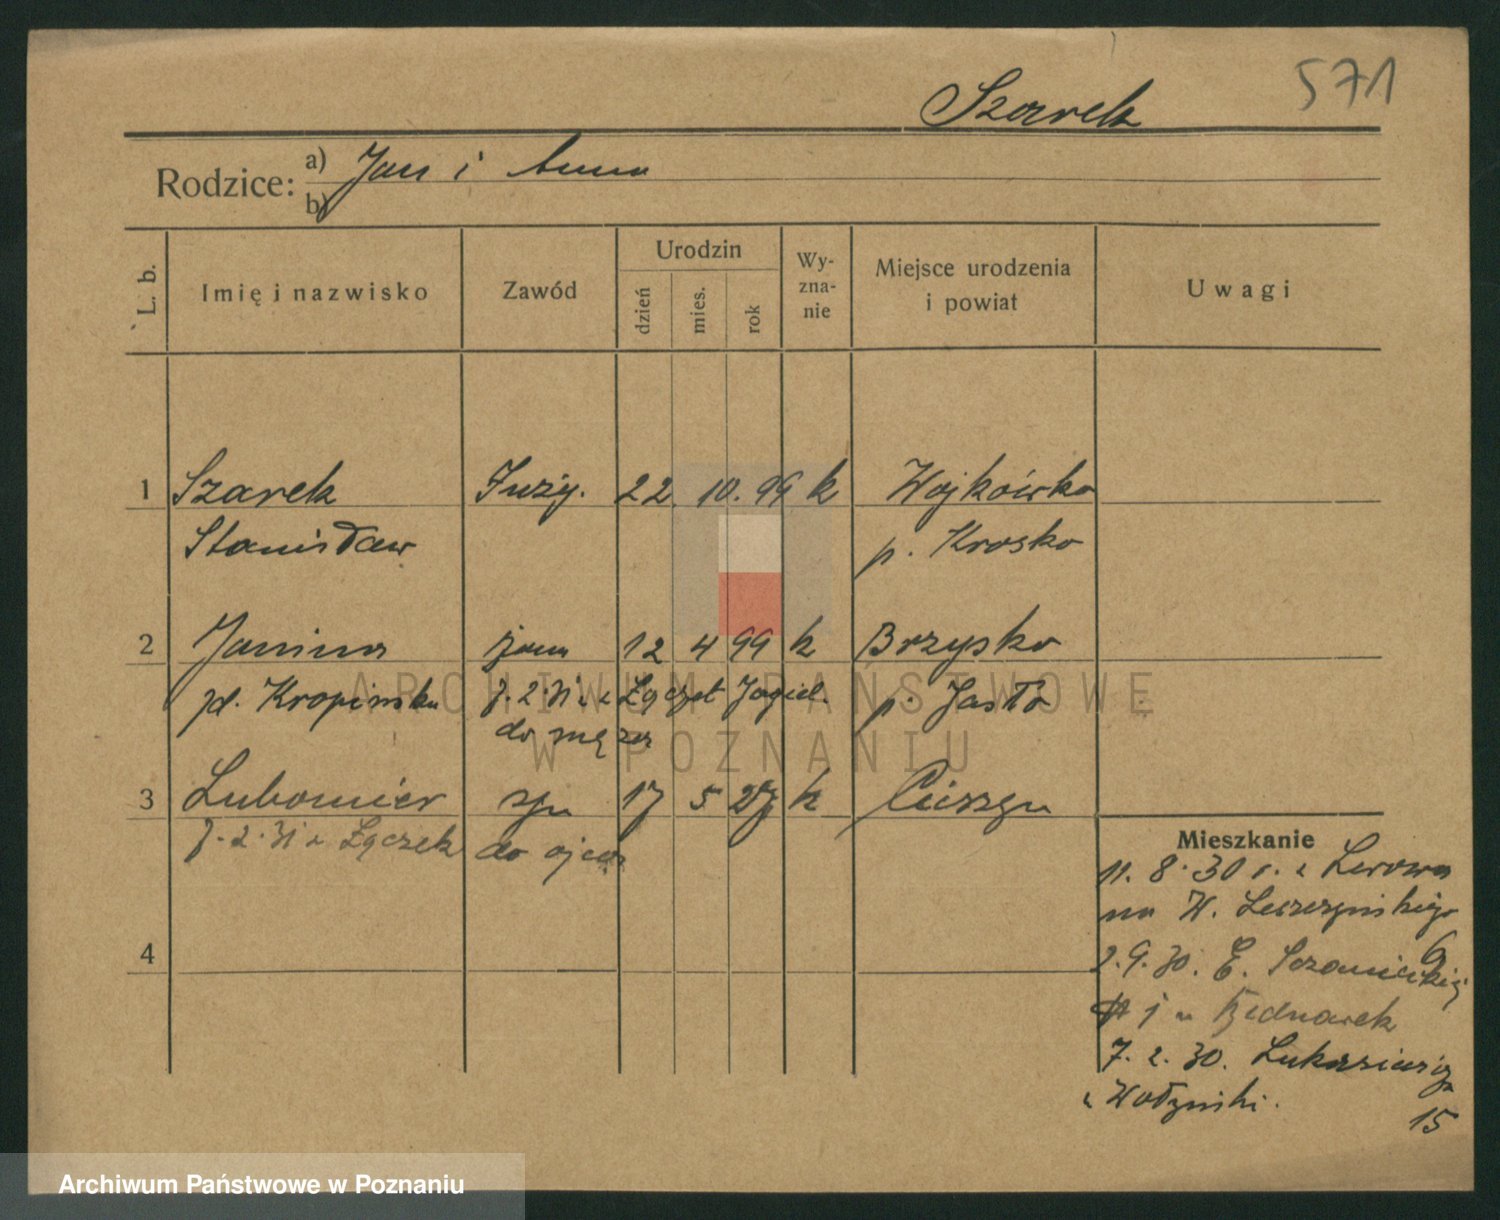 571
Szarek
Rodzice: a) Jan i Anna
b)
L. b. Imię i nazwisko Zawód Urodzin dzień mies. rok Wy-zna-nie Miejsce urodzenia i powiat Uwagi
1 Szarek Inży. 22. 10. 99 k Wojkówka
Stanisław p. Krosko
2 Janina żona 12 4 99 k Brzysko
zd. Kropińska 7.2.31 z Łączek Jagiel. p. Jasło
do męża
3 Lubomier syn 17 5 27 k Cieszyn
7.2.31 z Łączek do ojca
4
Mieszkanie
11. 8. 30 r. z Lwowa
na W. Leszczyńskiego
6
2.9.30. E. Sczanieckiej
j u Bednarek
7. 2. 30. Łukasiewicza
u Wołyński.
15
ARCHIWUM PAŃSTWOWE
W POZNANIU
Archiwum Państwowe w Poznaniu